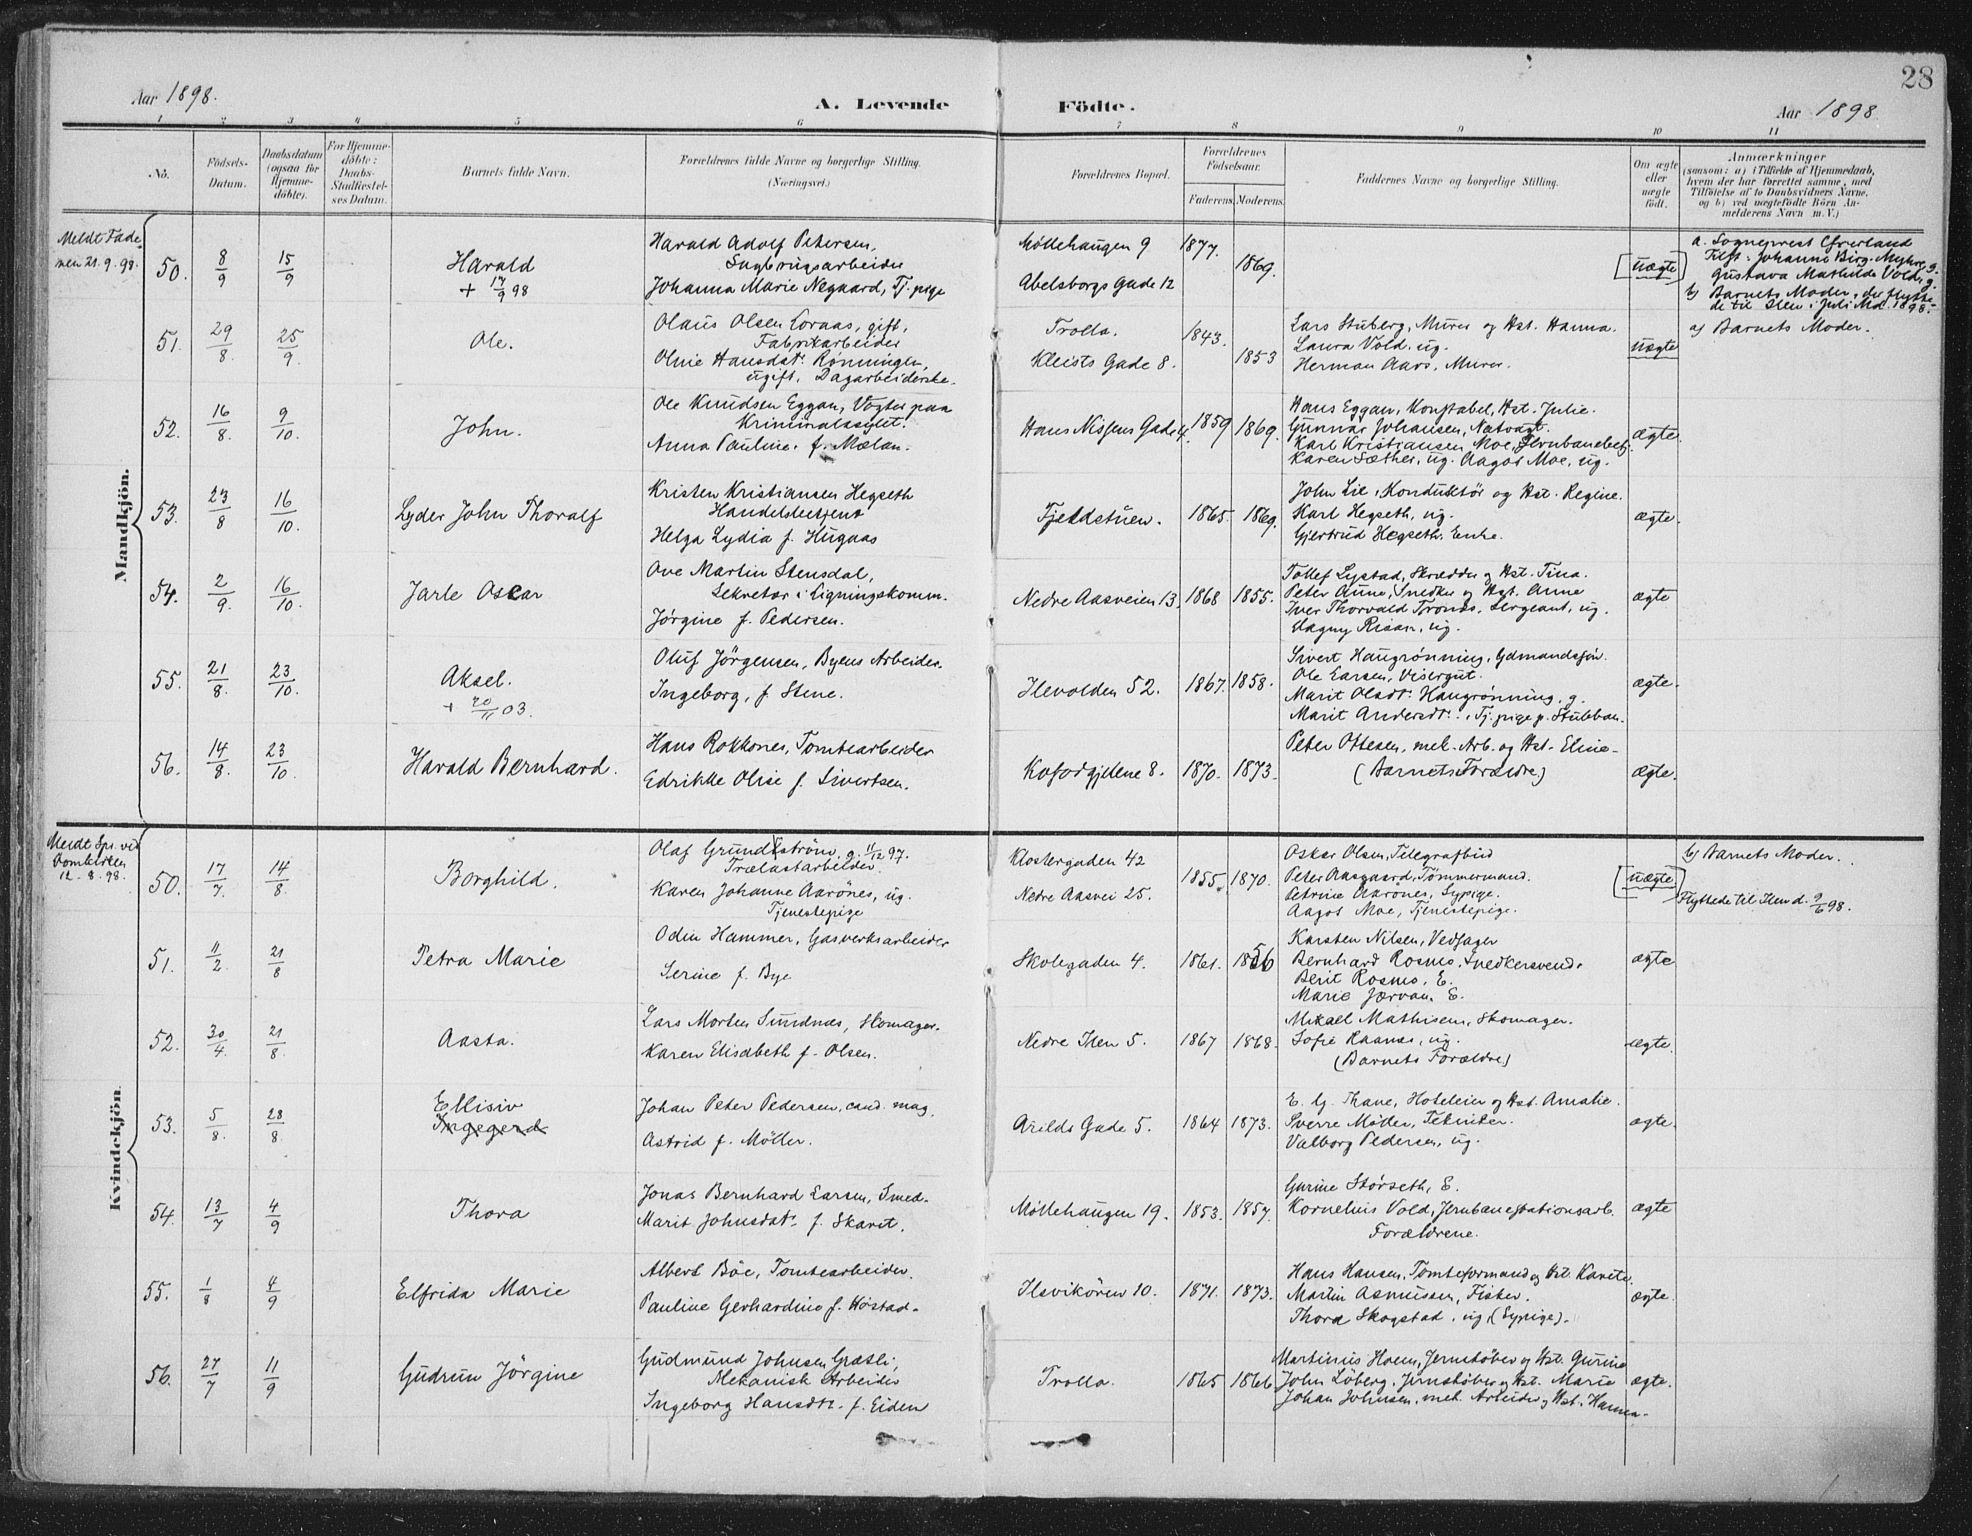 28
Aar 1898.
A. Levende Födte.
Aar 1898
1 2 3 4 5 6 7 8 9 10 11
No.
Födsels-Datum.
Daabsdatum (ogsaa for Hjemme-döbte).
For Hjemme-döbte: Daabs-Stadfæstel-ses Datum.
Barnets fulde Navn.
Forældrenes fulde Navne og borgerlige Stilling.
(Næringsvei.)
Forældrenes Bopæl.
Forældrenes Födselsaar.
Faderens. Moderens.
Faddernes Navne og borgerlige Stilling.
Om ægte eller uægte födt.
Anmærkninger
(saasom: a) i Tilfælde af Hjemmedaab,
hvem der har forrettet samme, med
Tilföielse af to Daabsvidners Navne,
og b) ved uægtefödte Börn An-
melderens Navn m. V.)
Mandkjön.
Meldt Fade
men 21.9.98.
50. 8/9 15/9
Harald
+ 17/9 98
Harald Adolf Petersen,
Sagbrugsarbeider
Johanna Marie Negaard, Tj. pige
Möllehaugen 9
Abelsborgs Gade 12
1877. 1869.
[uægte]
a. Sogneprest
Gustava Mathilde Vold, g.
b) Barnets Moder, der flytte-
de til Ilen i Juli Md. 1898.
51. 29/8 25/9
Ole.
Olaus Olsen Loraas, gift,
Fabrikarbeider
Oline Hansdatr. Rönningen,
ugift, Dagarbeiderske.
Trolla.
Kleists Gade 8.
1843. 1853
Lars Stuberg, Murer og Hst. Hanna.
Laura Vold, ug.
Herman Aars, Murer.
uægte
a) Barnets Moder.
52. 16/8. 9/10.
John.
Ole Knudsen Eggan, Vogter paa
Kriminalasylet.
Anna Pauline, f. Mælan.
Hans Nissens Gade 4.
1859 1869.
Hans Eggan, Konstabel, Hst. Julie.
Gunnar Johansen, Natvagt.
Karl Kristiansen Moe, Jernbanebetj.
Karen Sæther, ug. Aagot Moe, ug.
ægte.
53. 23/8 16/10.
Lyder John Thoralf
Kristen Kristiansen Hegseth
Handelsbetjent
Helga Lydia f. Hugaas
Fjeldstuen.
1865. 1869.
John Lie, Konduktör og Hst. Regine.
Karl Hegseth, ug.
Gjertrud Hegseth, Enke.
ægte.
54. 2/9. 16/10.
Jarle Oscar
Ove Martin Stensdal,
Sekretær i Ligningskomm.
Jörgine f. Pedersen.
Nedre Aasveien 13.
1868 1855.
Tollef Lystad, Skrædder og Hst. Tina.
Peter Aune, Snedker og Hst. Anne
Iver Thorvald Trönes, Sergeant, ug.
Dagny Risan, ug.
ægte
55. 21/8. 23/10.
Aksel.
+ 20/11 03.
Oluf Jörgensen, Byens Arbeider.
Ingeborg, f. Stene.
Ilevolden 52.
1867. 1858.
Sivert Haugrönning, Gdmandssön.
Ole Larsen, Visergut.
Marit Olsdtr. Haugrönning, g.
Marit Andersdtr., Tj. pige p. Stubban.
ægte.
56. 14/8. 23/10.
Harald Bernhard.
Hans Rokkones, Tomtearbeider
Edrikke Olise f. Sivertsen.
Kofodgjetene 8.
1870. 1873.
Peter Ottesen, mek. Arb. og Hst. Eline-
(Barnets Forældre)
ægte.
Kvindekjön
Meldt Spr. ved
Domkirken
12.8.98.
50. 17/7. 14/8
Borghild.
Olaf Grundström, g. 11/12 97.
Trælastarbeider.
Karen Johanne Aarönes, ug.
Tjenestepige
Klostergaden 42
Nedre Aasvei 25.
1855. 1870.
Oskar Olsen, Telegrafbud
Peter Aasgaard, Tömmermand.
Petrine Aarönes, Sypige.
Aagot Moe, Tjenestepige.
[uægte]
b) Barnets Moder.
Flyttede til Ilen d. 9/6 98.
51. 11/2 21/8
Petra Marie
Odin Hammer, Gasverksarbeider
Serine f. Bye
Skolegaden 4.
1861. 1856
Karsten Nilsen, Vedsager
Bernhard Rosmo, Snedkersvend.
Berit Rosmo, E.
Marie Jærvan, E.
ægte
52. 30/4. 21/8.
Aasta.
Lars Morten Sundnæs, Skomager.
Karen Elisabeth f. Olsen.
Nedre Ilen 5.
1867 1868.
Mikael Mathisen, Skomager.
Sofie Raanæs, ug.
(Barnets Forældre)
ægte.
53. 5/8. 28/8.
Ellisiv
Ingegerd
Johan Peter Pedersen, cand. mag.
Astrid f. Möller.
Arilds Gade 5.
1864 1873.
E. G. Thane, Hoteleier og Hst. Amalie.
Sverre Möller, Tekniker.
Valborg Pedersen, ug.
ægte.
54. 13/7 4/9
Thora
Jonas Bernhard Larsen, Smed.
Marit Johnsdatr. f. Skaret.
Möllehaugen 19.
1853. 1857.
Gurine Störseth, E.
Kornelius Vold, Jernbanestationsarb.
Forældrene.
ægte
55. 1/8 4/9
Elfrida Marie
Albert Böe, Tomtearbeider.
Pauline Gerhardine f. Höstad.
Ilsvikören 10.
1871. 1873.
Hans Hansen, Tomteformand og Hst. Karete.
Martin Asmussen, Fisker.
Thora Skogstad, ug. (Sypige).
ægte.
56. 27/7 11/9
Gudrun Jörgine
Gudmund Johnsen Græsli,
Mekanisk Arbeider
Ingeborg Hansdtr. f. Eiden
Trolla.
1865 1866
Martinus Hoem, Jernstöber og Hst. Gurine
John Löberg, Jernstöber og Hst. Marie
Johan Johnsen, mek. Arbeider og Hst. Hanna.
ægte.